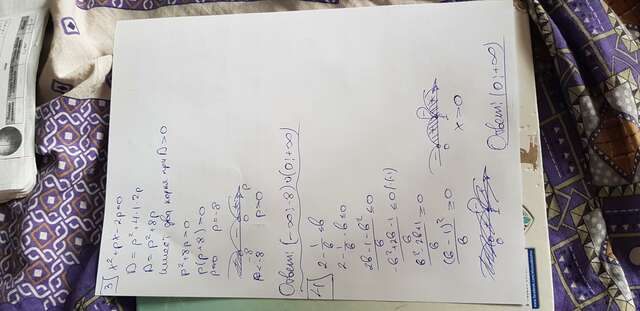 3) x²+px-2p=0
D = p²+4·1·2p
D = p²+8p
имеет два корня при D>0
p²+8p=0
p(p+8)=0
p=0 p=-8
-8 0 p
p<-8 p>0
Ответ: (-∞;-8)∪(0;+∞)
4) 2-1/b ≤ b
2-1/b-b≤0
(2b-1-b²)/b ≤0
-b²+2b-1 ≤0 |(-1)
(b²-2b+1)/b ≥0
(b-1)²/b ≥0
0
x>0
Ответ: (0;+∞)